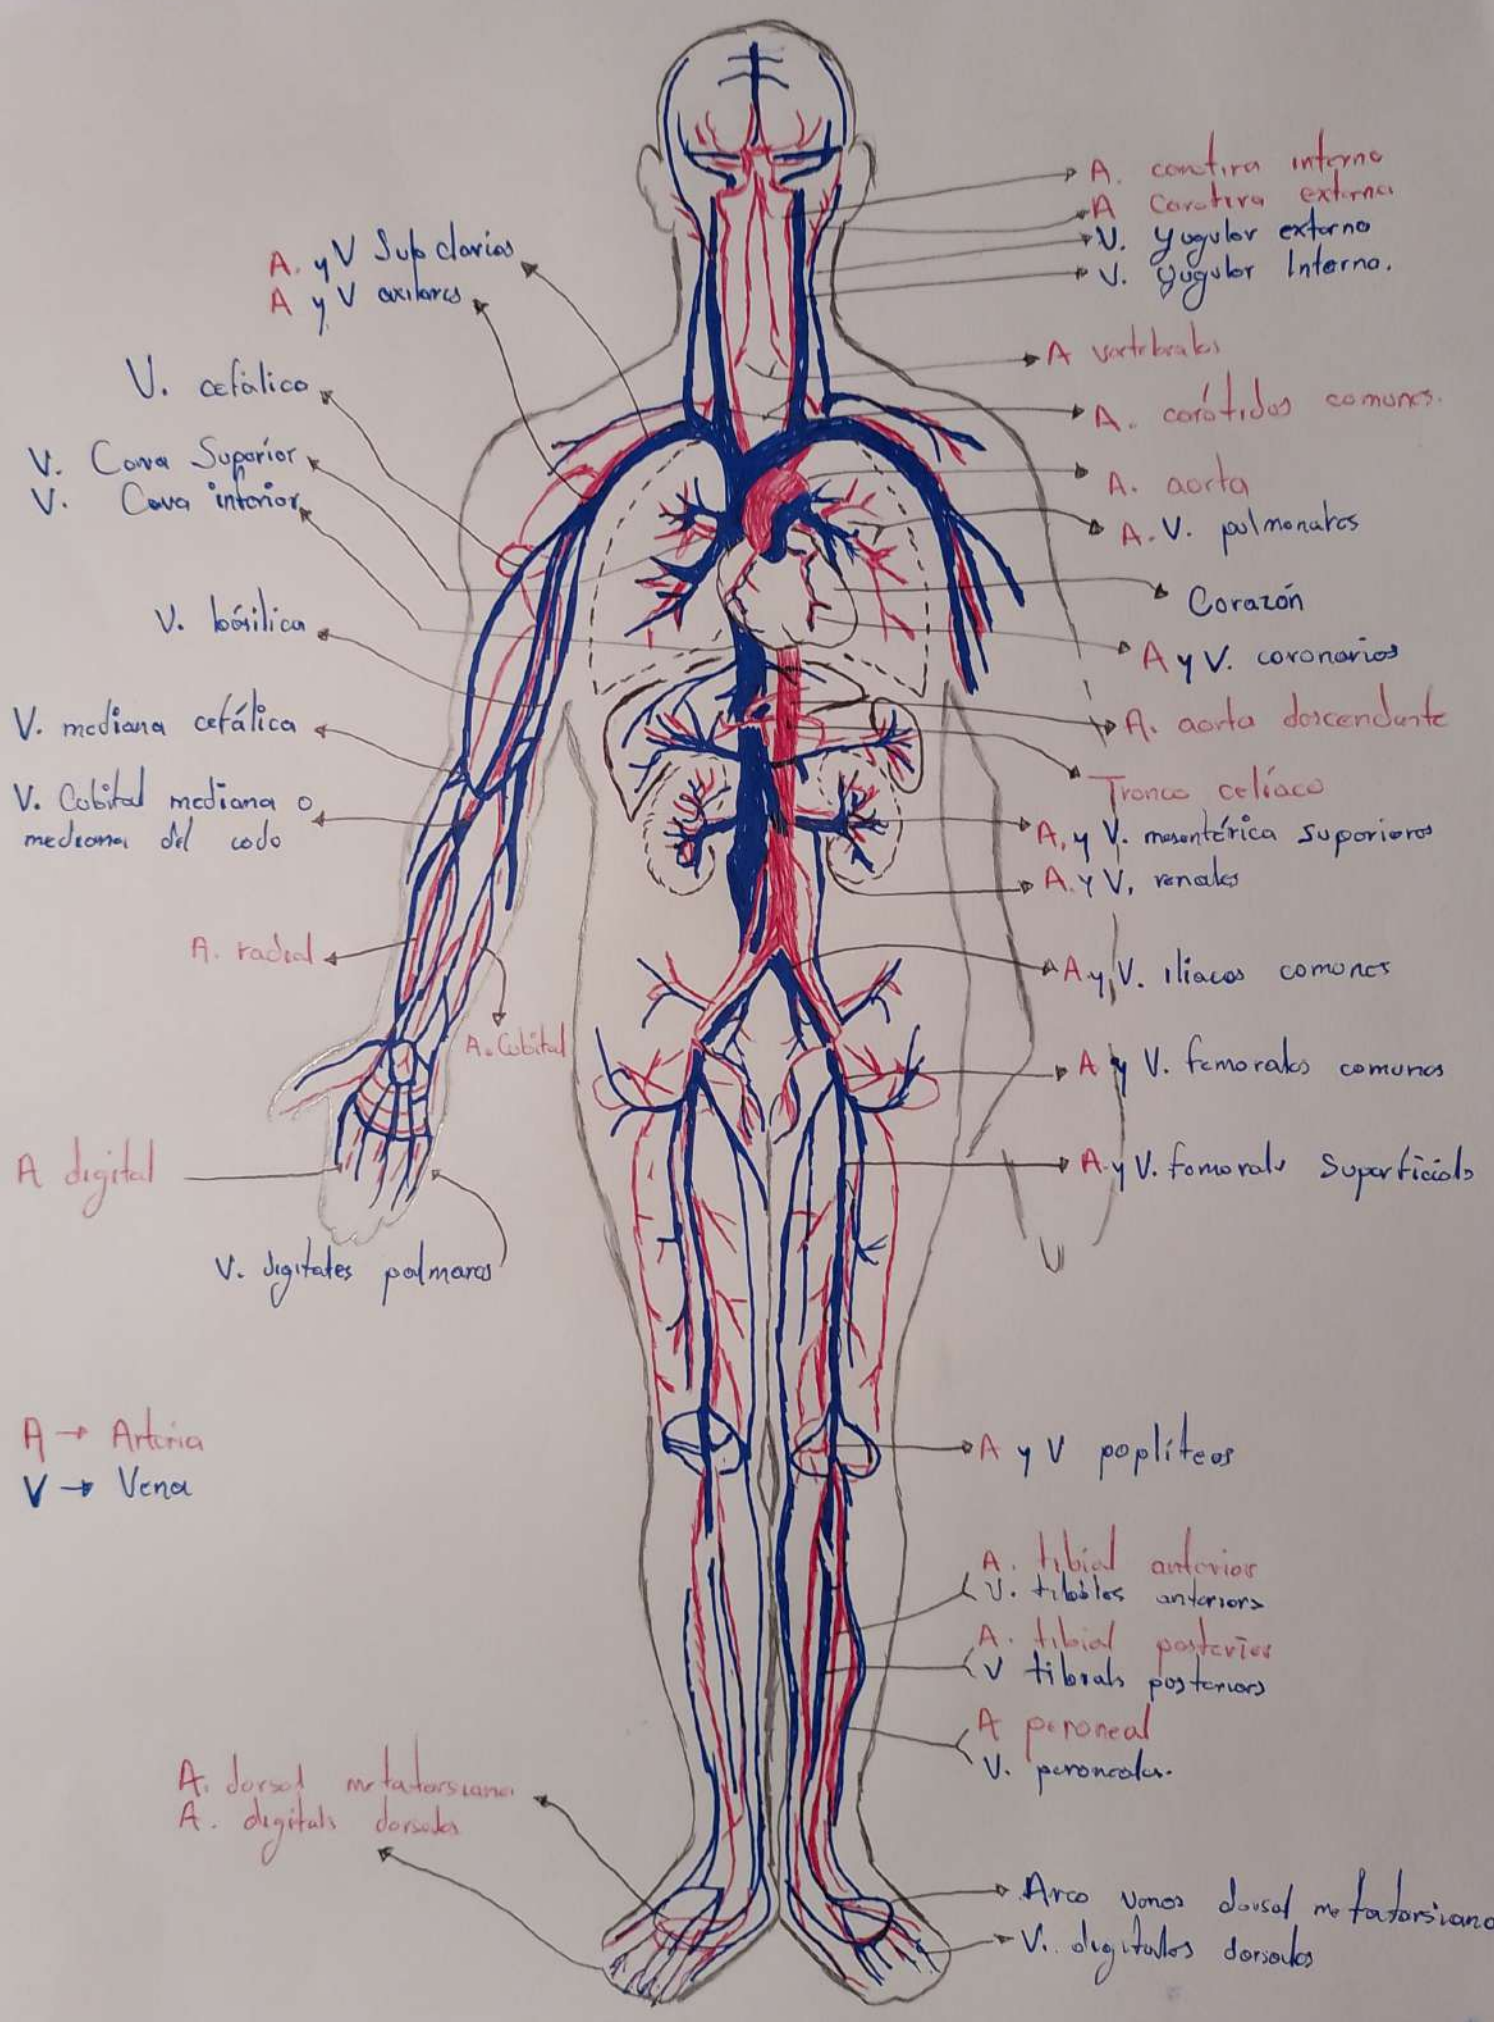 A. y V Subclavias
A y V axilares
V. cefálica
V. Cava Superior
V. Cava inferior
V. básilica
V. mediana cefálica
V. Cubital mediana o
mediana del codo
A. radial
A. Cubital
A digital
V. digitales palmares
A → Arteria
V → Vena
A. dorsal metatarsiana
A. digitals dorsales
A. interna
A externa
V. Yugular externa
V. yugular Interna.
A vertebrales
A. carótidas comunes.
A. aorta
A. V. pulmonares
Corazón
A y V. coronarias
A. aorta descendente
Tronco celíaco
A, y V. mesentérica Superiores
A. y V, renales
A y V. iliacas comunes
A y V. femorales comunes
A y V. femorals Superficials
A y V poplíteas
A. tibial anterior
V. anteriors
A. tibial posterior
V tibials posteriors
A peroneal
V. peroneales.
Arco venos dorsal metatarsiano
V. digitales dorsales